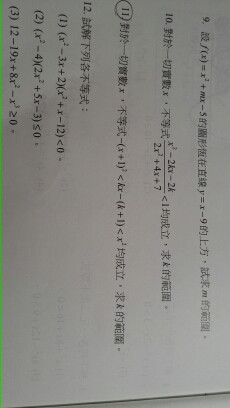 9. 設 f(x) = x² + mx − 5 的圖形恆在直線 y = x − 9 的上方，試求 m 的範圍。
10. 對於一切實數 x，不等式 (x² − 2kx − 2k)/(2x² + 4x + 7) < 1 均成立，求 k 的範圍。
11. 對於一切實數 x，不等式 −(x+1)² − kx − (k+1) < x² 均成立，求 k 的範圍。
12. 試解下列各不等式：
(1) (x² − 3x + 2)(x² + x − 12) < 0。
(2) (x² − 4)(2x² + 5x − 3) ≤ 0。
(3) 12 − 19x + 8x² − x³ ≥ 0。